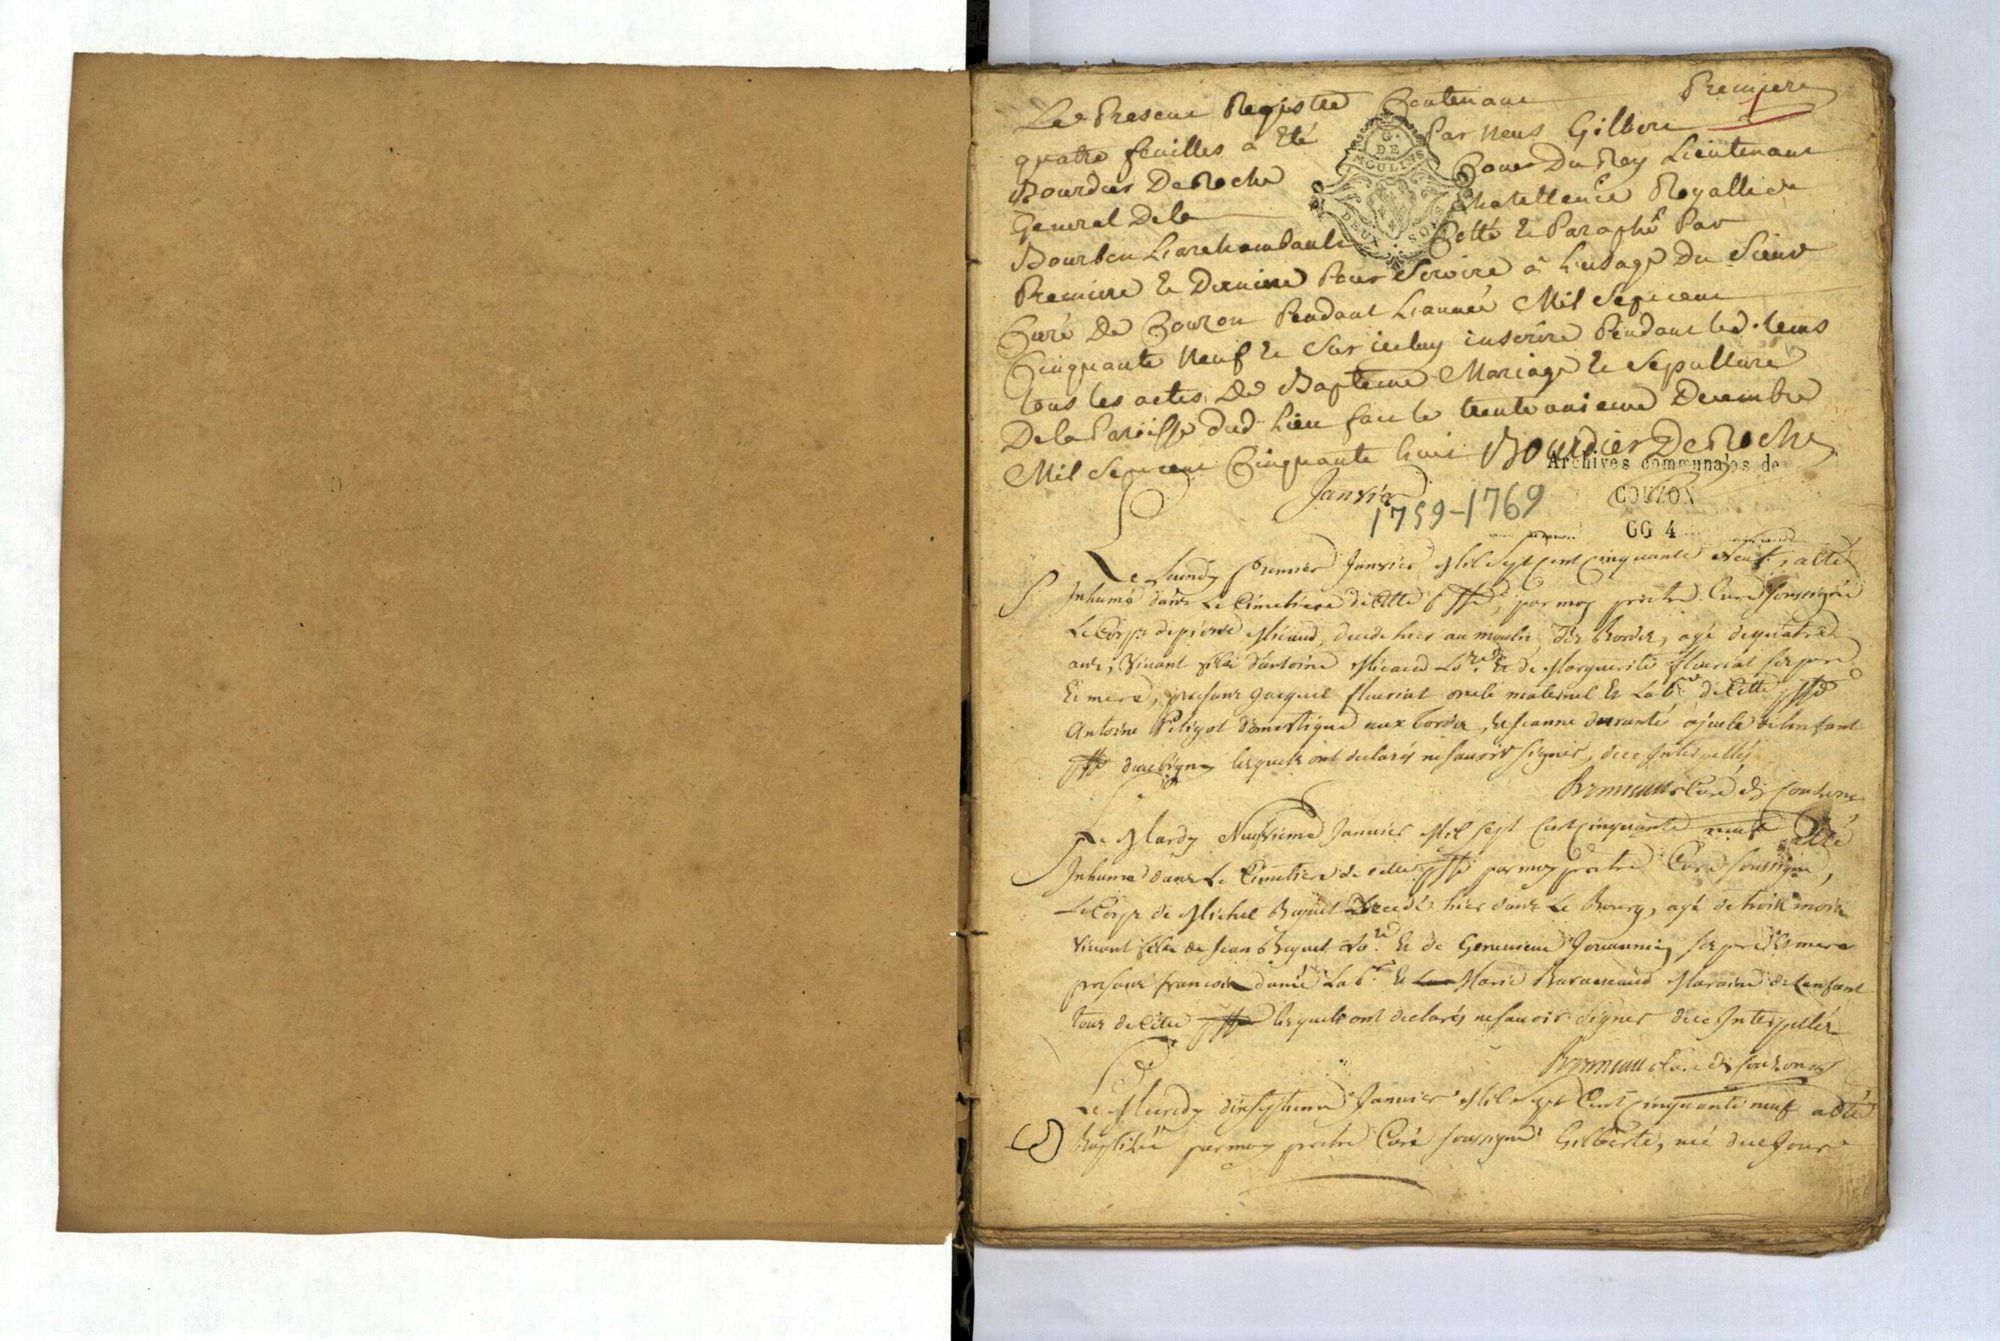 Premiere
Le Present Registre Contenant
quatre feuilles a Eté Par Nous Gilbert
Bourdier DeRoche Coner Du Roy Lieutenant
General De la Chatellenie Royalle de
Bourbon Larchambault Cotté et Paraphé Par
Premiere et Derniere Pour Servire à Lusage Du Sieur
Curé De Couzon Pendant Lannée Mil Sept cent
Cinquante Neuf et Sur iceluy inscrire Pendant led. tems
tous les actes De Bapteme Mariage et Sepulture
De la Paroisse dud Lieu fait le trente unieme Decembre
Mil Sept cent Cinquante huit Bourdier DeRoche
G.
DE
MOULINS
DEUX SOLS
Archives communales de
COUZON
GG 4
Janvier
1759-1769
Le Lundy premier Janvier Mil Sept Cent Cinquante Neuf, a eté
S Inhumé dans Le Cimetiere de Cette psse, par moy pretre Curé soussigné
Le Corps de pierre Micaud, decedé hier au moulin des Bordes, agé de quatre
ans, vivant fils d'antoine Micaud Lab.r et de Marguerite fleuriat ses pere
Et mere, presans jacques fleuriat oncle maternel et Lab.r de Cette psse
Antoine Petigot domestique aux bordes, et jeanne durante ajeule de l'enfant
psse lesquels ont declarés ne savoir signer, de ce Interpellés
Curé de Couzon
Le Mardy Neuvieme Janvier Mil Sept Cent Cinquante neuf a Eté
Inhumé dans Le Cimetiere de cette psse par moy pretre Curé soussigné,
Le Corps de Michel Decedé hier dans Le Bourg, agé de trois mois
vivant fils de jean Lab.r et de Genevieve ses pere et mere
presans francois Lab.r Et Marie Maraine de l'enfant
tous de Cette psse lesquels ont declarés ne savoir signer de ce Interpellés
Curé de Couzon
Le Mercredy dixseptieme Janvier Mil Sept Cent Cinquante neuf a eté
B Baptisée par moy pretre Curé soussigné Gilberte, née du Jour